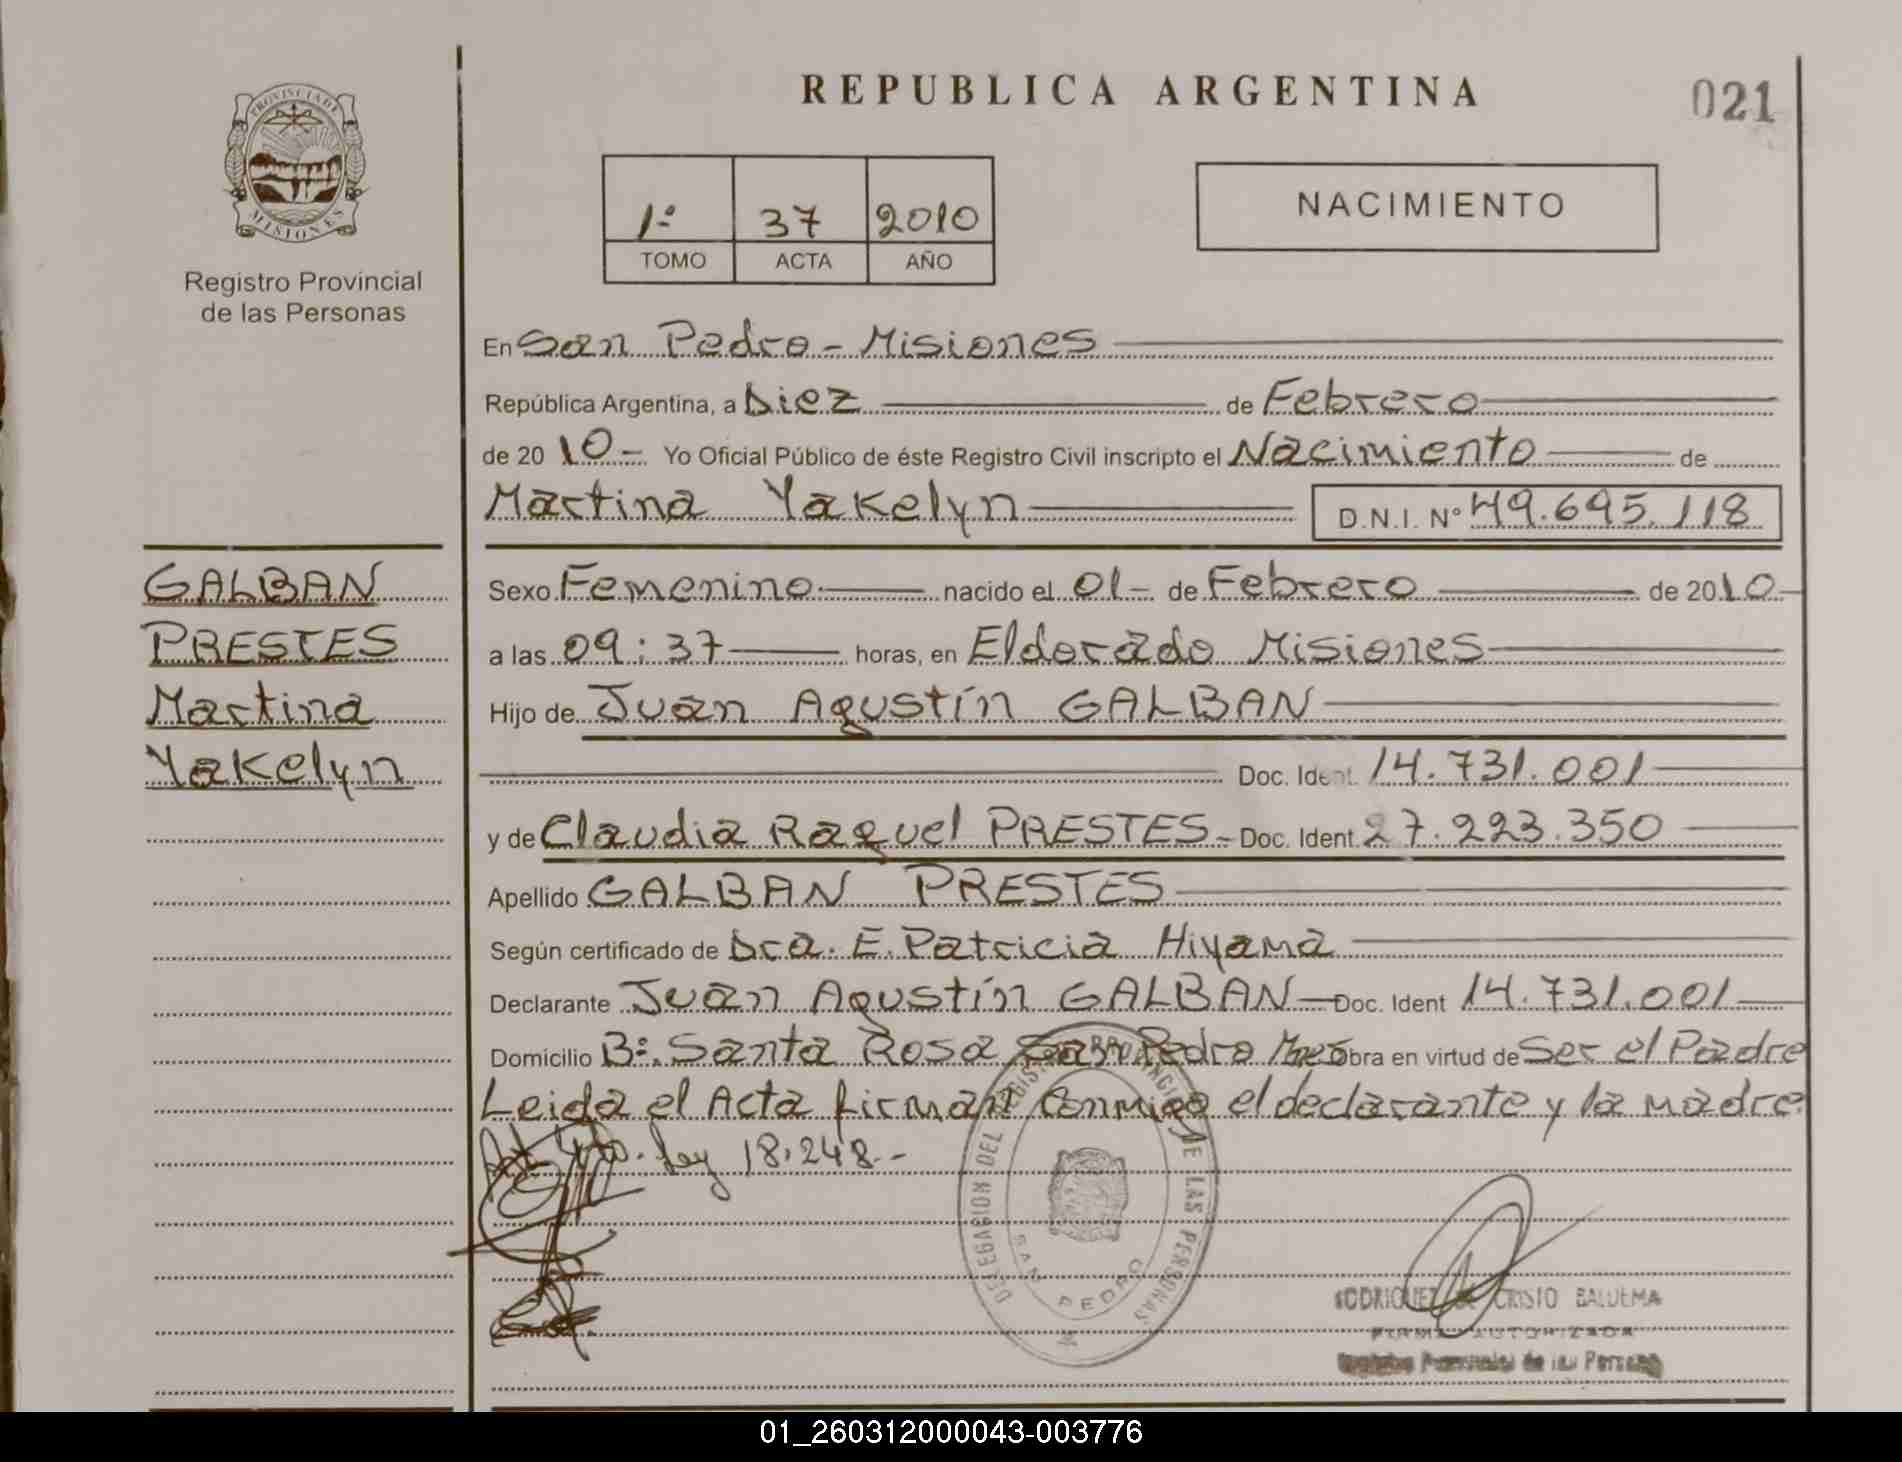 REPUBLICA ARGENTINA
021
PROVINCIA DE
MISIONES
Registro Provincial
de las Personas
1º 37 2010
TOMO ACTA AÑO
NACIMIENTO
En San Pedro - Misiones
República Argentina, a Diez de Febrero
de 2010 - Yo Oficial Público de éste Registro Civil inscripto el Nacimiento de
Martina Yakelyn D.N.I. Nº 49.695.118
GALBAN
PRESTES
Martina
Yakelyn
Sexo Femenino nacido el 01 - de Febrero de 2010 -
a las 09:37 horas, en Eldorado Misiones
Hijo de Juan Agustín GALBAN
Doc. Ident. 14.731.001
y de Claudia Raquel PRESTES - Doc. Ident. 27.223.350
Apellido GALBAN PRESTES
Según certificado de Dra. E. Patricia Hiyama
Declarante Juan Agustín GALBAN - Doc. Ident 14.731.001
Domicilio Bº. Santa Rosa San Pedro Mnes obra en virtud de Ser el Padre
Leida el Acta firman conmigo el declarante y la madre.
Ley 18.248.-
DELEGACION DEL REGISTRO PROVINCIAL DE LAS PERSONAS
SAN PEDRO
M
RODRIGUEZ DE CRISTO BALDEMA
FIRMA AUTORIZADA
Registro Provincial de las Personas
01_260312000043-003776